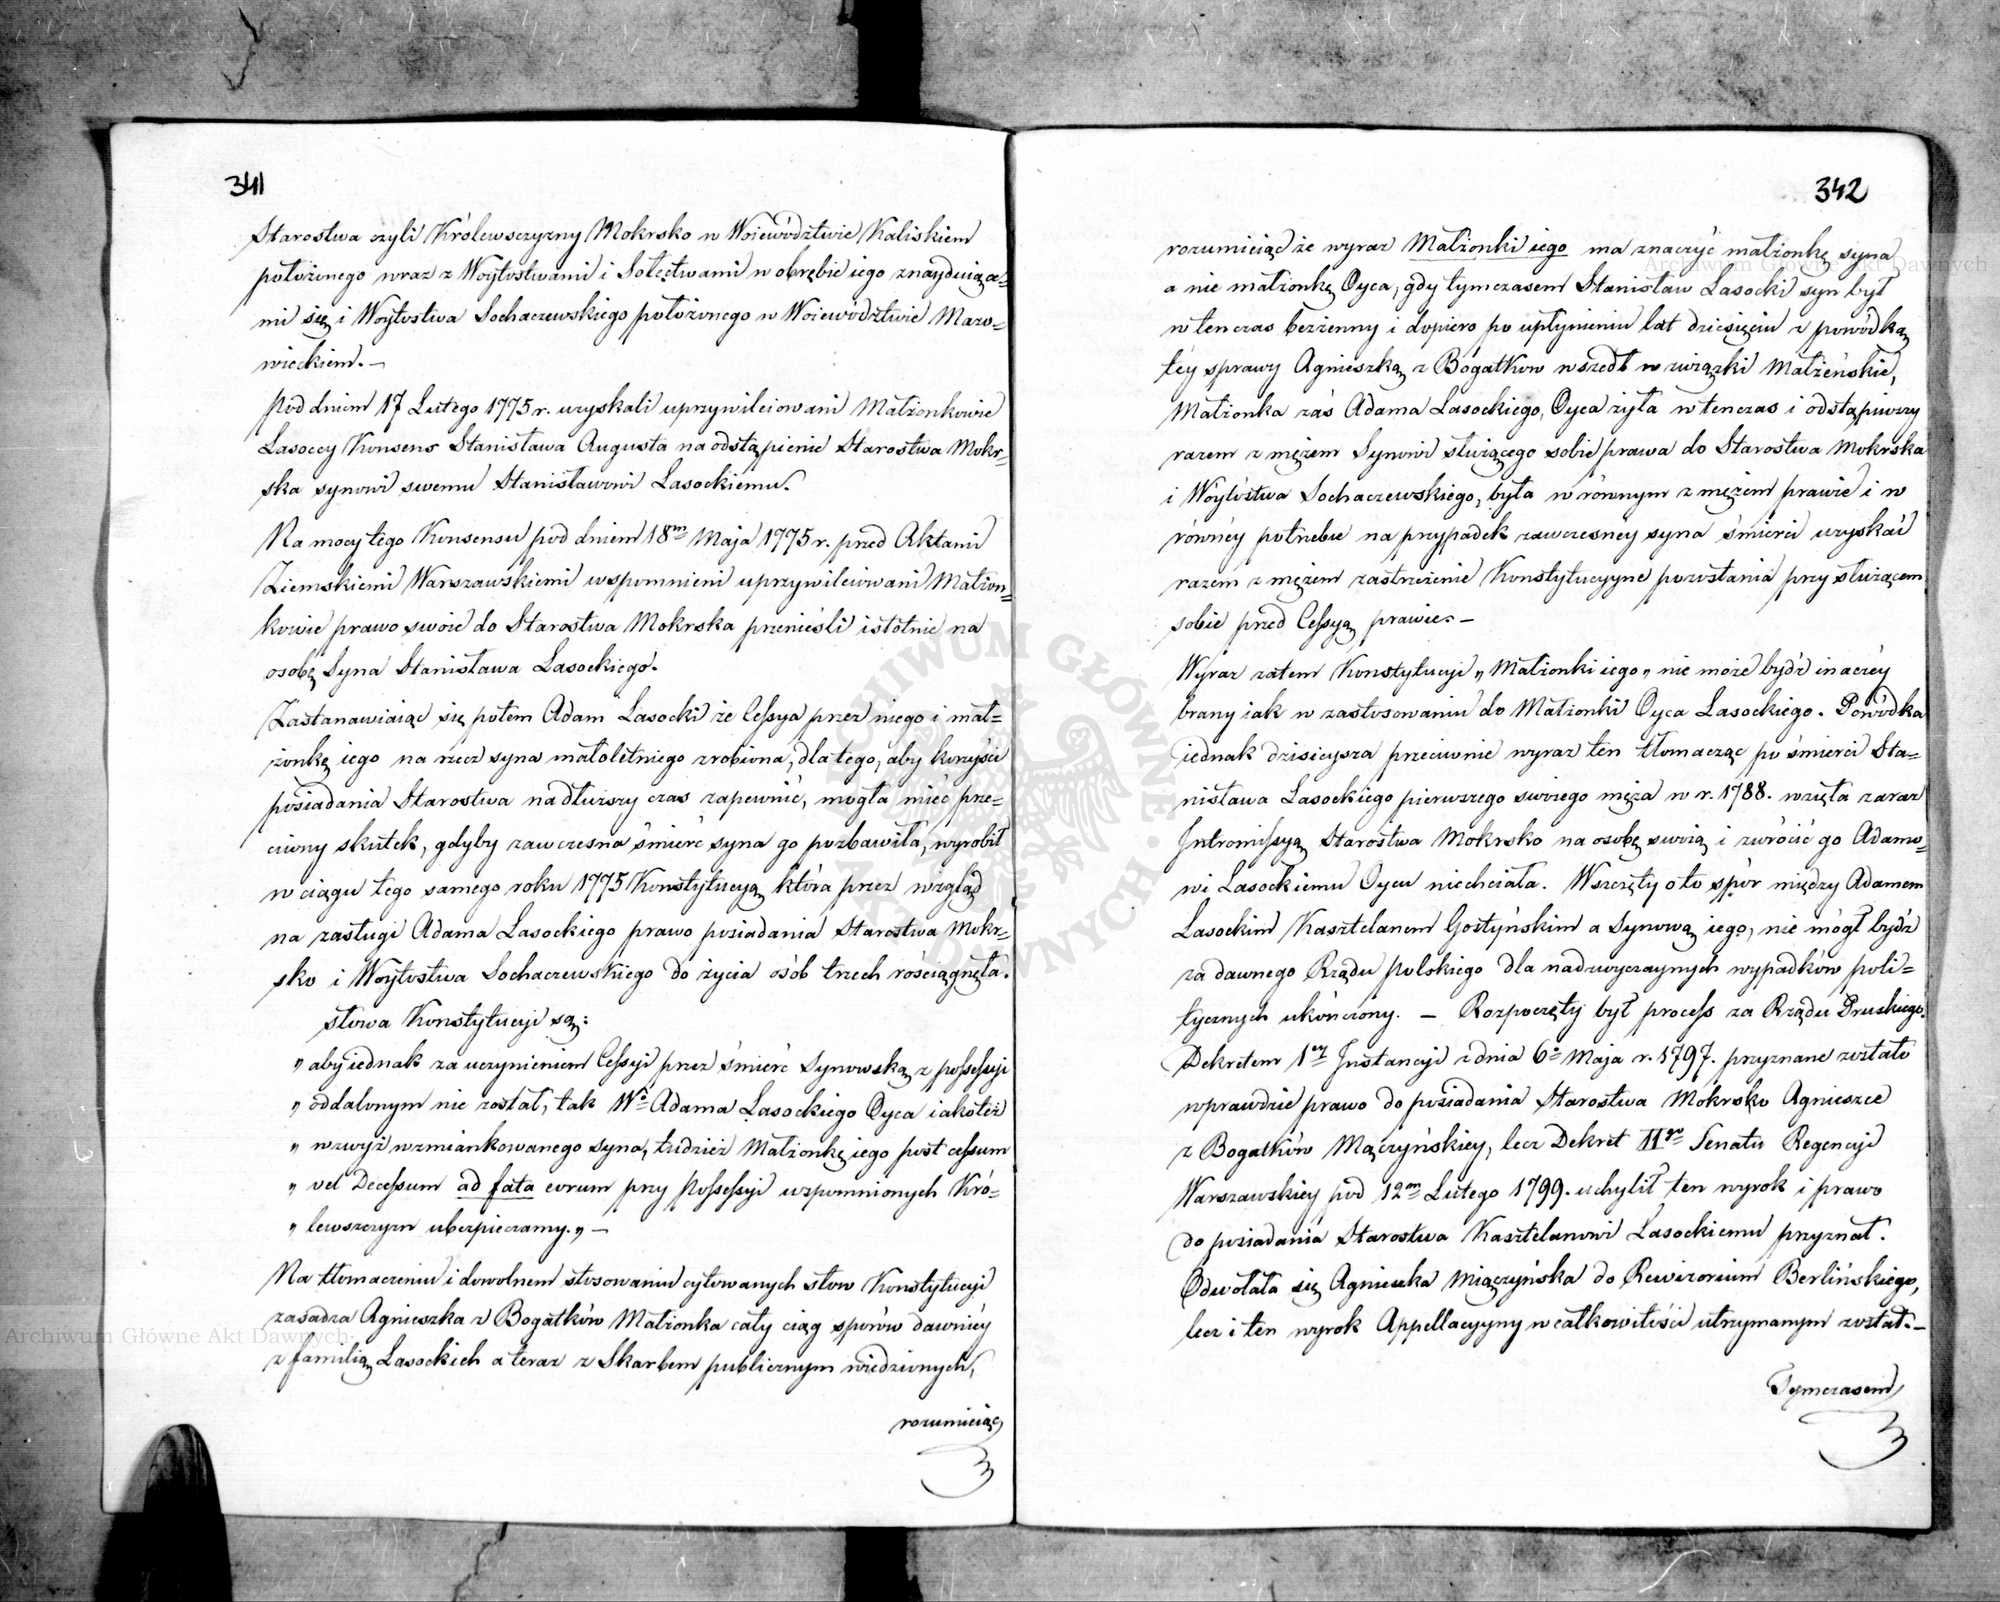 341
Starostwa czyli Królewsczyzny Mokrsko w Woiewództwie Kaliskiem
położonego wraz z Woytostwami i Sołectwami w obrębie iego znayduiące=
mi się i Woytostwa Sochaczewskiego położonego w Woiewództwie Mazo=
wieckiem. —
Pod dniem 17 Lutego 1775 r. uzyskali uprzywileiowani Małżonkowie
Lasoccy Konsens Stanisława Augusta na odstąpienie Starostwa Mokr=
ska synowi swemu Stanisławowi Lasockiemu.
Na mocy tego Konsensu pod dniem 18m Maja 1775 r. przed Aktami
Ziemskiemi Warszawskiemi wspomnieni uprzywileiowani Małżon=
kowie prawo swoie do Starostwa Mokrska przenieśli istotnie na
osobę Syna Stanisława Lasockiego.
Zastanawiaiąc się potem Adam Lasocki że Cessya przez niego i mał=
żonkę iego na rzecz syna małoletniego zrobiona, dla tego, aby korzyści
posiadania Starostwa na dłuższy czas zapewnić, mogła mieć prze=
ciwny skutek, gdyby zawczesna śmierć syna go pozbawiła, wyrobił
w ciągu tego samego roku 1775 Konstytucyą która przez wzgląd
na zasługi Adama Lasockiego prawo posiadania Starostwa Mokr=
sko i Woytostwa Sochaczewskiego do życia osób trzech rościągnęła.
słowa Konstytucyi są:
„ aby iednak za uczynieniem Cessyi przez śmierć Synowską z possessyi
„ oddalonym nie został, tak Wo Adama Lasockiego Oyca iakoteż
„ wzwyż wzmiankowanego syna, tudzież Małżonkę iego post cessum
„ vel Decessum ad fata eorum przy Possessyi wspomnionych Kró=
„ lewszczyzn ubezpieczamy.„ —
Na tłomaczeniu i dowolnem stosowaniu cytowanych słow Konstytucyi
zasadza Agnieszka z Bogatków Małżonka cały ciąg sporów dawniéy
z familią Lasockich a teraz z Skarbem publicznym wiedzionych,
rozumieiąc
342
rozumieiąc że wyraz Małżonki iego ma znaczyć małżonkę syna
a nie małżonkę Oyca, gdy tymczasem Stanisław Lasocki syn był
w ten czas bezżenny i dopiero po upłynieniu lat dziesięciu z powódką
téy sprawy Agnieszką z Bogatkow wszedł w związki Małżeńskie,
Małżonka zaś Adama Lasockiego, Oyca żyła w tenczas i odstąpiwszy
razem z mężem Synowi służącego sobie prawa do Starostwa Mokrska
i Woytostwa Sochaczewskiego, była w równym z mężem prawie i w
równéy potrzebie na przypadek zawczesnéy syna śmierci uzyskać
razem z mężem zastrzeżenie Konstytucyyne pozostania przy służącem
sobie przed Cessyą prawie. —
Wyraz zatem Konstytucyi „Małżonki iego„ nie może bydź inaczéy
brany iak w zastosowaniu do Małżonki Oyca Lasockiego. Powódka
iednak dzisieysza przeciwnie wyraz ten tłomacząc po śmierci Sta=
nisława Lasockiego pierwszego swoiego męża w r. 1788. wzięła zaraz
Intromissyą Starostwa Mokrsko na osobę swoią i zwrócić go Adamo=
wi Lasockiemu Oycu niechciała. Wszczęty o to spór między Adamem
Lasockim Kasztelanem Gostyńskim a Synową iego, nie mógł bydź
za dawnego Rządu polskiego dla nadzwyczaynych wypadków poli=
tycznych ukończony. — Rozpoczęty był process za Rządu Pruskiego.
Dekretem 1ey Instancyi z dnia 6o Maja r. 1797. przyznane zostało
wprawdzie prawo do posiadania Starostwa Mokrsko Agnieszce
z Bogatków Mączyńskiey, lecz Dekret IIgo Senatu Regencyi
Warszawskiey pod 12m Lutego 1799. uchylił ten wyrok i prawo
do posiadania Starostwa Kasztelanowi Lasockiemu przyznał.
Odwołała się Agnieszka Miączyńska do Rewizorium Berlińskiego,
lecz i ten wyrok Appellacyyny w całkowitości utrzymanym został. —
Tymczasem
Archiwum Główne Akt Dawnych
Archiwum Główne Akt Dawnych
ARCHIWUM GŁÓWNE AKT DAWNYCH